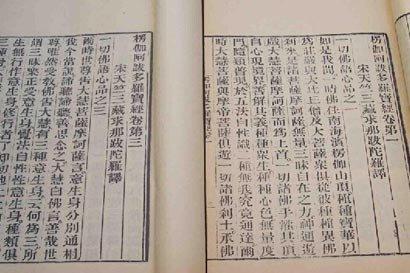 楞伽阿跋多羅寶經卷第一
宋天竺三藏求那跋陀羅譯
一切佛語心品之一
如是我聞一時佛住南海濱楞伽山頂種種寶華以
爲莊嚴與大比丘僧及大菩薩衆俱從彼種種異佛
刹來是諸菩薩摩訶薩無量三昧自在之力神通遊
戲大慧菩薩摩訶薩而爲上首一切諸佛手灌其頂
自心現境界善解其義種種衆生種種心色無量度
門隨類普現於五法自性識二種無我究竟通達爾
時大慧菩薩與摩帝菩薩俱遊一切諸佛刹土承佛
楞伽阿跋多羅寶經卷第三
宋天竺三藏求那跋陀羅譯
一切佛語心品之三
爾時世尊告大慧菩薩摩訶薩言意生身分別通相
我今當說諦聽諦聽善思念之大慧白佛言善哉世
尊唯然受教佛告大慧有三種意生身云何爲三所
謂三昧樂正受意生身覺法自性性意生身種類俱
生無行作意生身修行者了知初地上